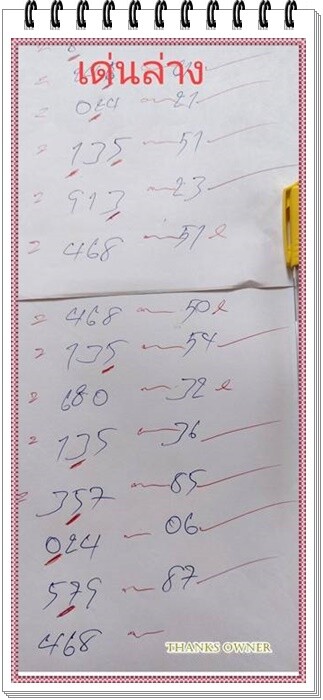 เด่นล่าง
024 - 21
= 135 - 51
= 913 - 23
= 468 - 51 e
= 468 - 50 e
= 135 - 54
= 680 - 32 e
= 135 - 36
= 357 - 85
024 - 06
579 - 87
468 -
THANKS OWNER